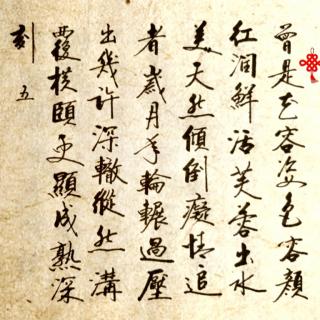 曾是花容姿色容顏
紅潤鮮活芙蓉出水
美天然傾倒癡情追
者歲月年輪輾過壓
出幾許深轍縱然溝
壑橫頤更顯成熟深
刻 五